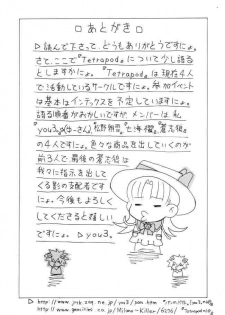 □あとがき□
▷読んで下さって、どうもありがとうですにょ。
さて、ここで『Tetrapod』について少し語る
としますかにょ。『Tetrapod』は現在4人
で活動しているサークルですにょ。参加イベント
は基本はインテックスを予定していますにょ。
語る順番がおかしいですが メンバーは、私
の4人ですにょ。色々な商品を出していくのが
前3人で、最後の
我々に指示を出して
くる影の支配者です
にょ。今後もよろしく
してくださると嬉しい
ですにょ。▷you3。